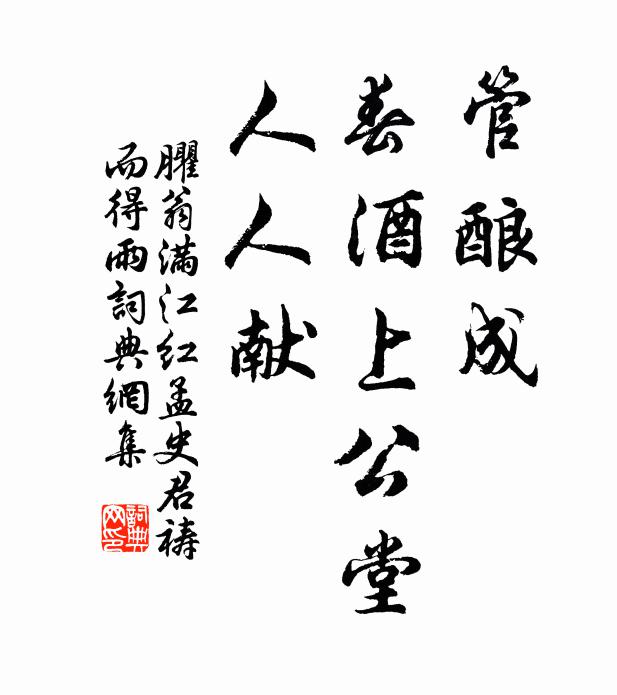 管酿成
春酒上公堂
人人献
臞翁满江红孟史君祷
而得雨詞典網集
詞典
网印